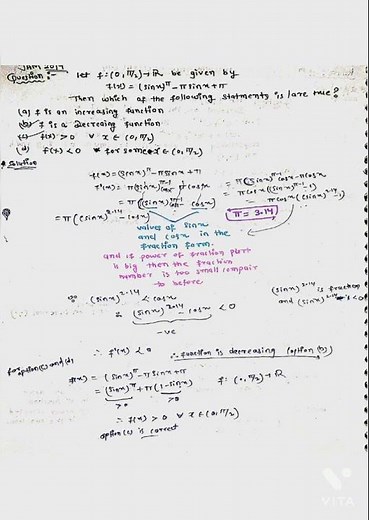 JAM 2014
Question:- let f:(0,π/2)→R be given by
f(x) = (sinx)^π - πsinx + π
Then which of the following statments is/are true?
(a) f is an increasing function
(b) f is a decreaing function
(c) f(x) > 0 ∀ x ∈ (0, π/2)
(d) f(x) < 0 for some x ∈ (0, π/2)
Solution
f(x) = (sinx)^π - πsinx + π
f'(x) = π(sinx)^π-1 cosx - π cosx
= π(sinx)^π-1 cosx - πcosx
πcosx((sinx)^π-1 - 1)
π = 3.14
values of sinx
and cosx in the
fraction form.
and if power of fraction part
is big then the fraction
number is too small compair
to before
(sinx)^2.14 < cosx
= (sinx)^2.14 - cosx < 0
-ve
(sinx)^2.14 is fraction
∴ f'(x) < 0
∴ function is decreasing (option (b))
for option (c) and (d)
f(x) = (sinx)^π - πsinx + π
= (sinx)^π + π(1-sinx) f: (0, π/2)→R
>0 >0
∴ f(x) > 0 ∀ x ∈ (0, π/2)
option (c) is correct
VITA